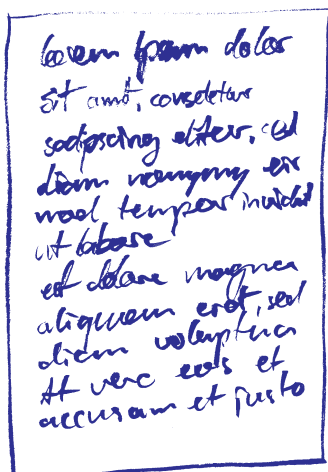 lorem ipsum dolor
sit amet, consetetur
sadipscing elitr, sed
diam nonymy eir
mod tempor invidut
ut labore
et dolore magna
aliquam erat, sed
diam voluptua
At vero eos et
accusam et justo